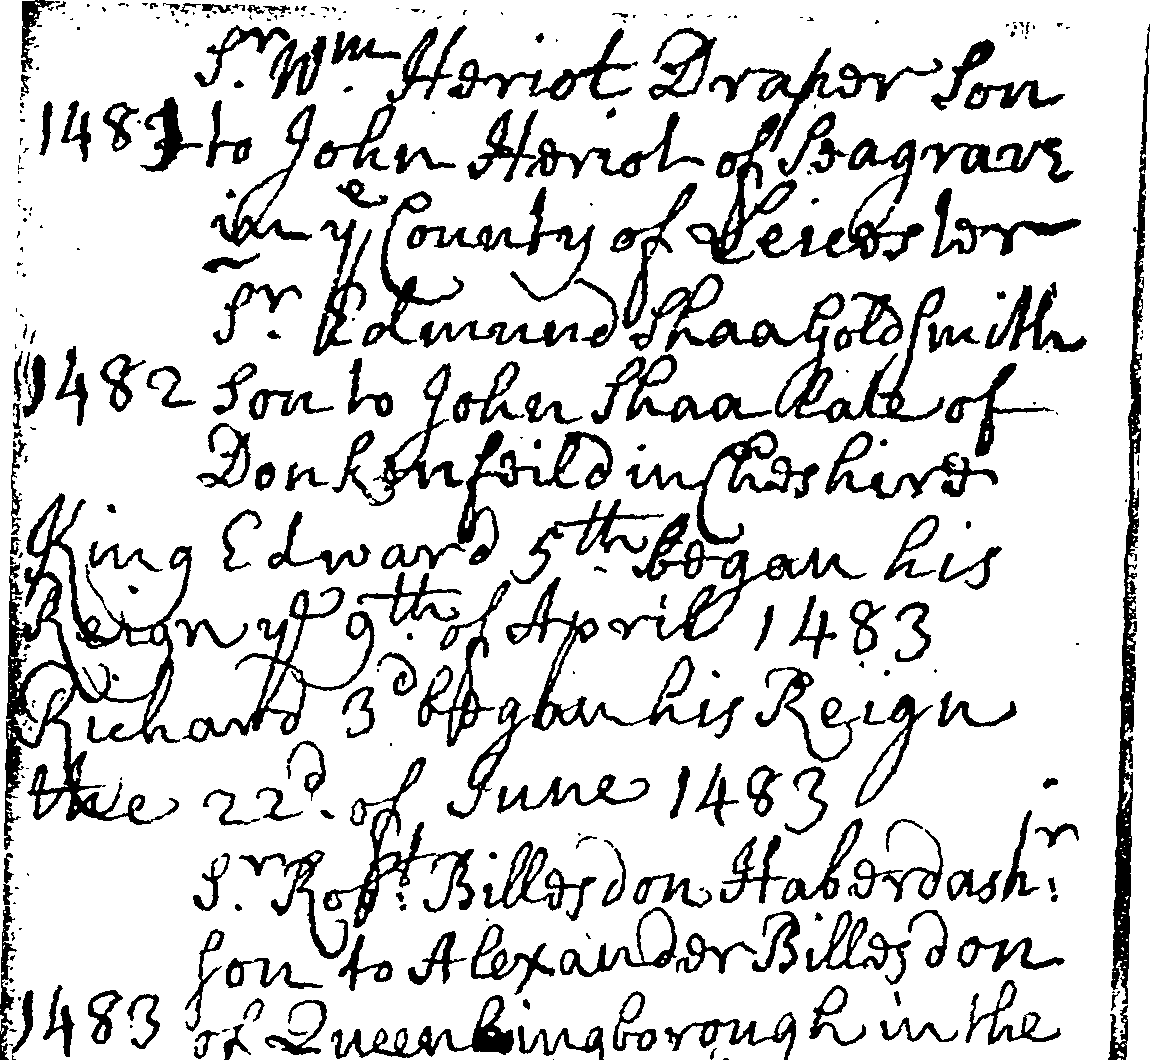 Sr. Wm. Heriot Draper Son
1481 to John Heriot of Seagrave
in ye County of Leicester
Sr. Edmund Shaa Goldsmith
1482 Son to John Shaa late of
Donkenfeild in Cheshire
King Edward 5th. began his
Reign ye 9th. of April 1483
Richard 3d began his Reign
the 22d. of June 1483
Sr. Robt. Billesdon Haberdashr.
Son to Alexander Billesdon
1483 of Queenbingborough in the